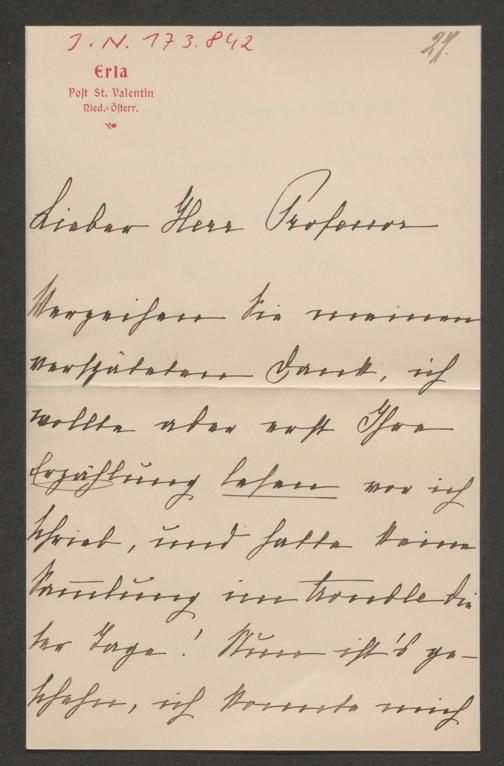 J. N. 173.842
27.
Erla
Post St. Valentin
Nied.-Österr.
Lieber Herr Professor
Verzeihen Sie meinen
verspäteten Dank, ich
wollte aber erst Ihre
Erzählung lesen vor ich
schrieb, und hatte keine
Sammlung im trouble die
ser Tage! Nun ist's ge-
schehn, ich konnte mich